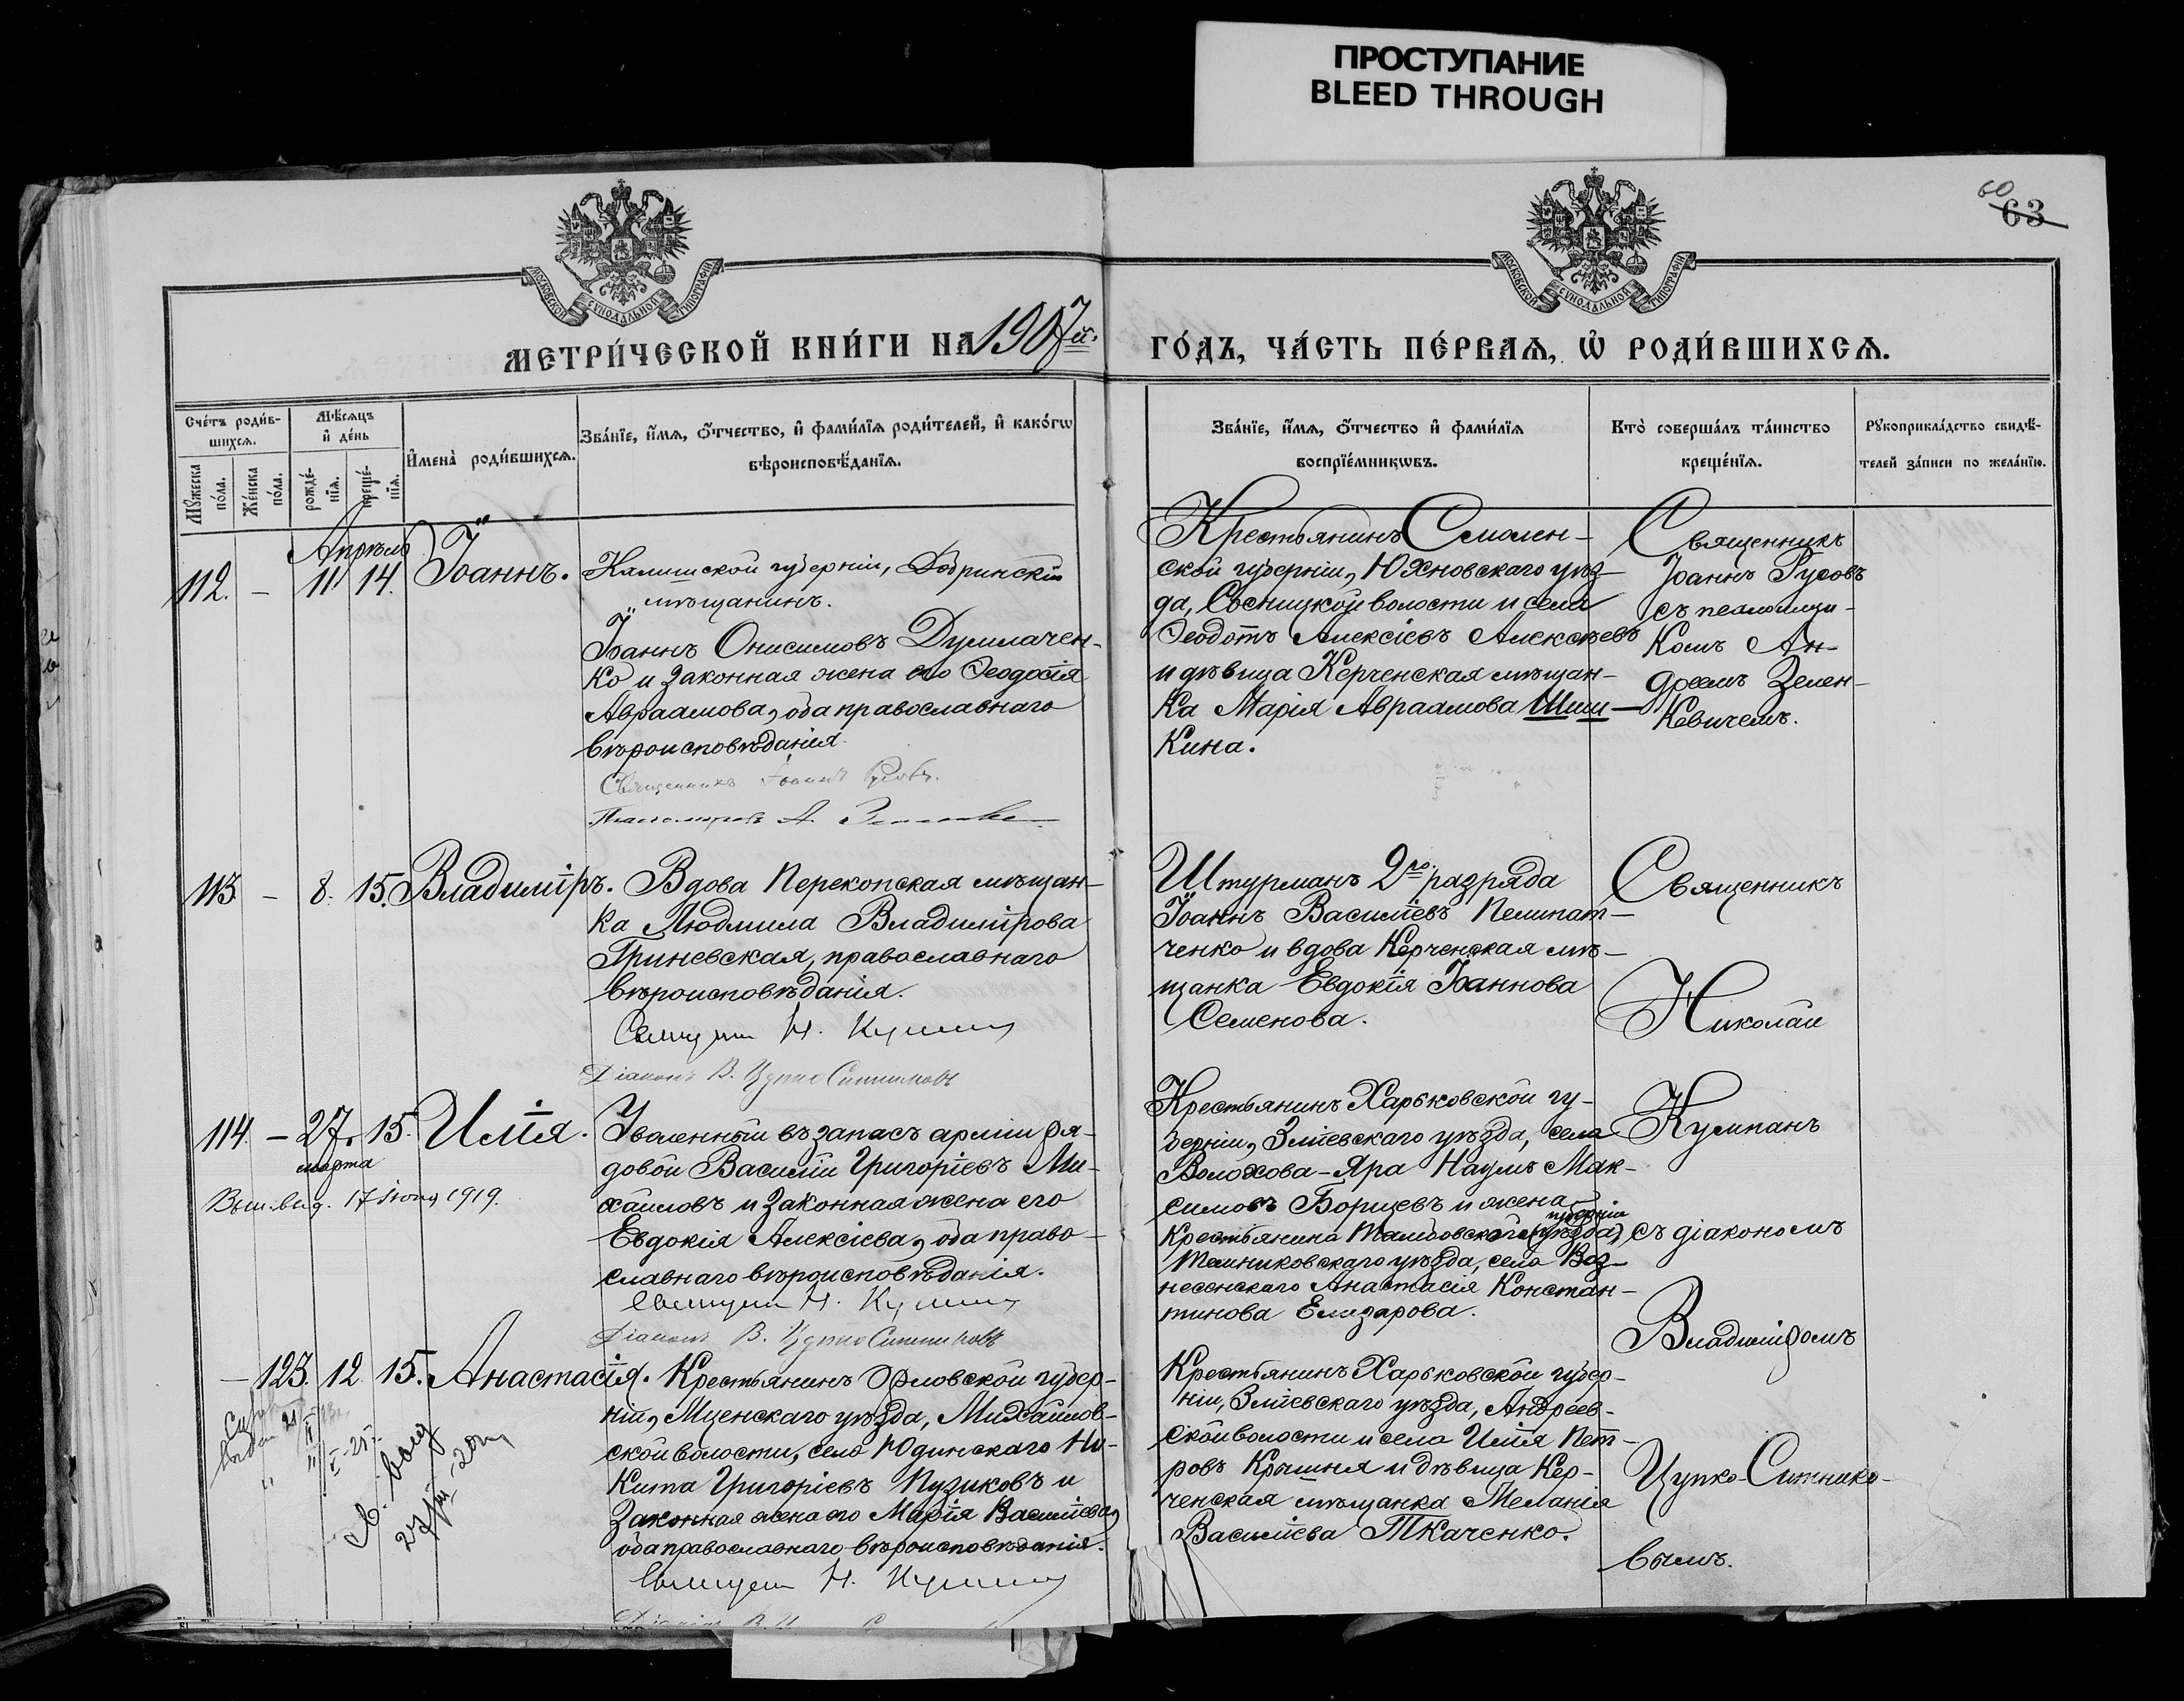 ПРОСТУПАНИЕ
BLEED THROUGH
60
63
МОСКОВСКОЙ СѴНОДАЛЬНОЙ ТИПОГРАФІИ
МОСКОВСКОЙ СѴНОДАЛЬНОЙ ТИПОГРАФІИ
МЕТРИ́ЧЕСКОЙ КНИ́ГИ НА 1907й.
ГО́ДЪ, ЧА́СТЬ ПЕ́РВАѦ, Ѡ҆ РОДИ́ВШИХСѦ.
Сче́тъ роди́в-
шихсѧ.
Мꙋ́жеска по́ла.
Же́нска по́ла.
Мѣ́сѧцъ
и҆ де́нь
рожде́-
нїѧ.
креще́-
нїѧ.
И҆мена̀ роди́вшихсѧ.
Зва́нїе, и҆́мѧ, ѻ҆́тчество, и҆ фами́лїѧ роди́телей, и҆ како́гѡ
вѣроисповѣ́данїѧ.
Зва́нїе, и҆́мѧ, ѻ҆́тчество и҆ фами́лїѧ
воспрїе́мникѡвъ.
Кто̀ соверша́лъ та́инство
креще́нїѧ.
Рꙋкоприкла́дство свидѣ́-
телей за́писи по жела́нїю.
Апрѣль
112. - 11 14. Іоаннъ.
Калишской губерніи, Добринскій
мѣщанинъ.
Іоаннъ Онисимовъ Думлачен-
ко и законная жена его Ѳеодосія
Авраамова, оба православнаго
вѣроисповѣданія.
Священникъ Іоаннъ Русовъ.
Псаломщикъ А.
Крестьянинъ Смолен-
ской губерніи, Юхновскаго уѣз-
да, Сосницкой волости и села
Ѳеодотъ Алексіевъ Алексѣевъ
и дѣвица Керченская мѣщан-
ка Марія Авраамова Шиш-
кина.
Священникъ
Іоаннъ Русовъ
съ псаломщи-
комъ Ан-
дреемъ Зелен-
кевичемъ.
113. - 8. 15. Владиміръ.
Вдова Перекопская мѣщан-
ка Людмила Владимірова
Гриневская, православнаго
вѣроисповѣданія.
Священникъ Н. Кумпанъ
Діаконъ В. Цупко Ситниковъ
Штурманъ 2го разряда
Іоаннъ Василіевъ Пелипат-
ченко и вдова Керченская мѣ-
щанка Евдокія Іоаннова
Семенова.
Священникъ
Николай
Кумпанъ
съ діакономъ
Владиміромъ
Цупко-Ситнико-
вымъ.
114. - 27. 15. Илія.
марта
Вып. выд. 17 іюня 1919.
Уволенный въ запасъ арміи ря-
довой Василій Григоріевъ Ми-
хайловъ и законная жена его
Евдокія Алексіева, оба право-
славнаго вѣроисповѣданія.
Священникъ Н. Кумпанъ
Діаконъ В. Цупко Ситниковъ
Крестьянинъ Харьковской гу-
берніи, Зміевскаго уѣзда, села
Волохова-Яра Наумъ Мак-
симовъ Борщевъ и жена
губерніи
крестьянина Тамбовской (уѣзда)
Темниковскаго уѣзда, села Воз-
несенскаго Анастасія Констан-
тинова Елизарова.
- 123. 12 15. Анастасія.
Крестьянинъ Орловской губер-
ніи, Мценскаго уѣзда, Михайлов-
ской волости, села Юдинскаго Ни-
кита Григоріевъ Пузиковъ и
законная жена его Марія Василіева,
оба православнаго вѣроисповѣданія.
Священникъ Н. Кумпанъ
Крестьянинъ Харьковской губер-
ніи, Зміевскаго уѣзда, Андреев-
ской волости и села Илія Пет-
ровъ Крышня и дѣвица Кер-
ченская мѣщанка Меланія
Василіева Ткаченко.